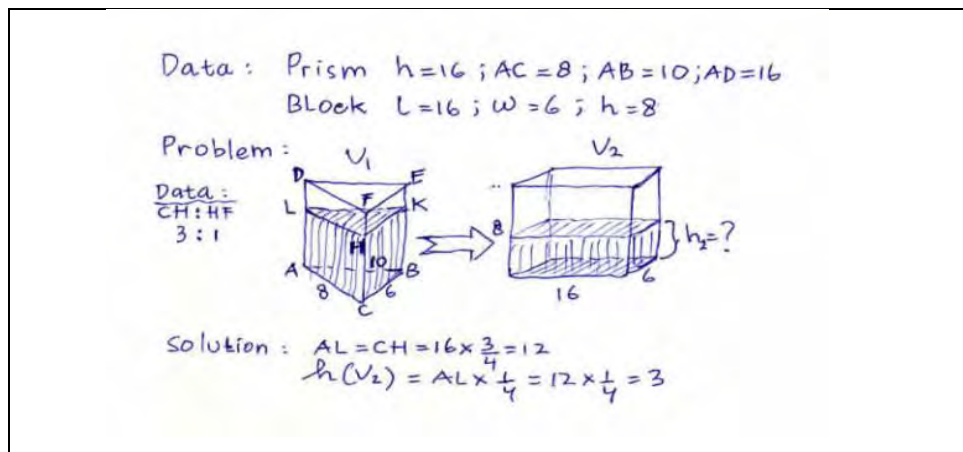 Data : Prism h=16 ; AC=8 ; AB=10 ; AD=16
BLock L=16 ; W=6 ; h=8
Problem :
V1
V2
Data :
CH : HF
3 : 1
D
E
F
L
K
H
A
10
B
8
6
C
8
h2=?
16
6
Solution : AL = CH = 16 × 3/4 = 12
h(V2) = AL × 1/4 = 12 × 1/4 = 3